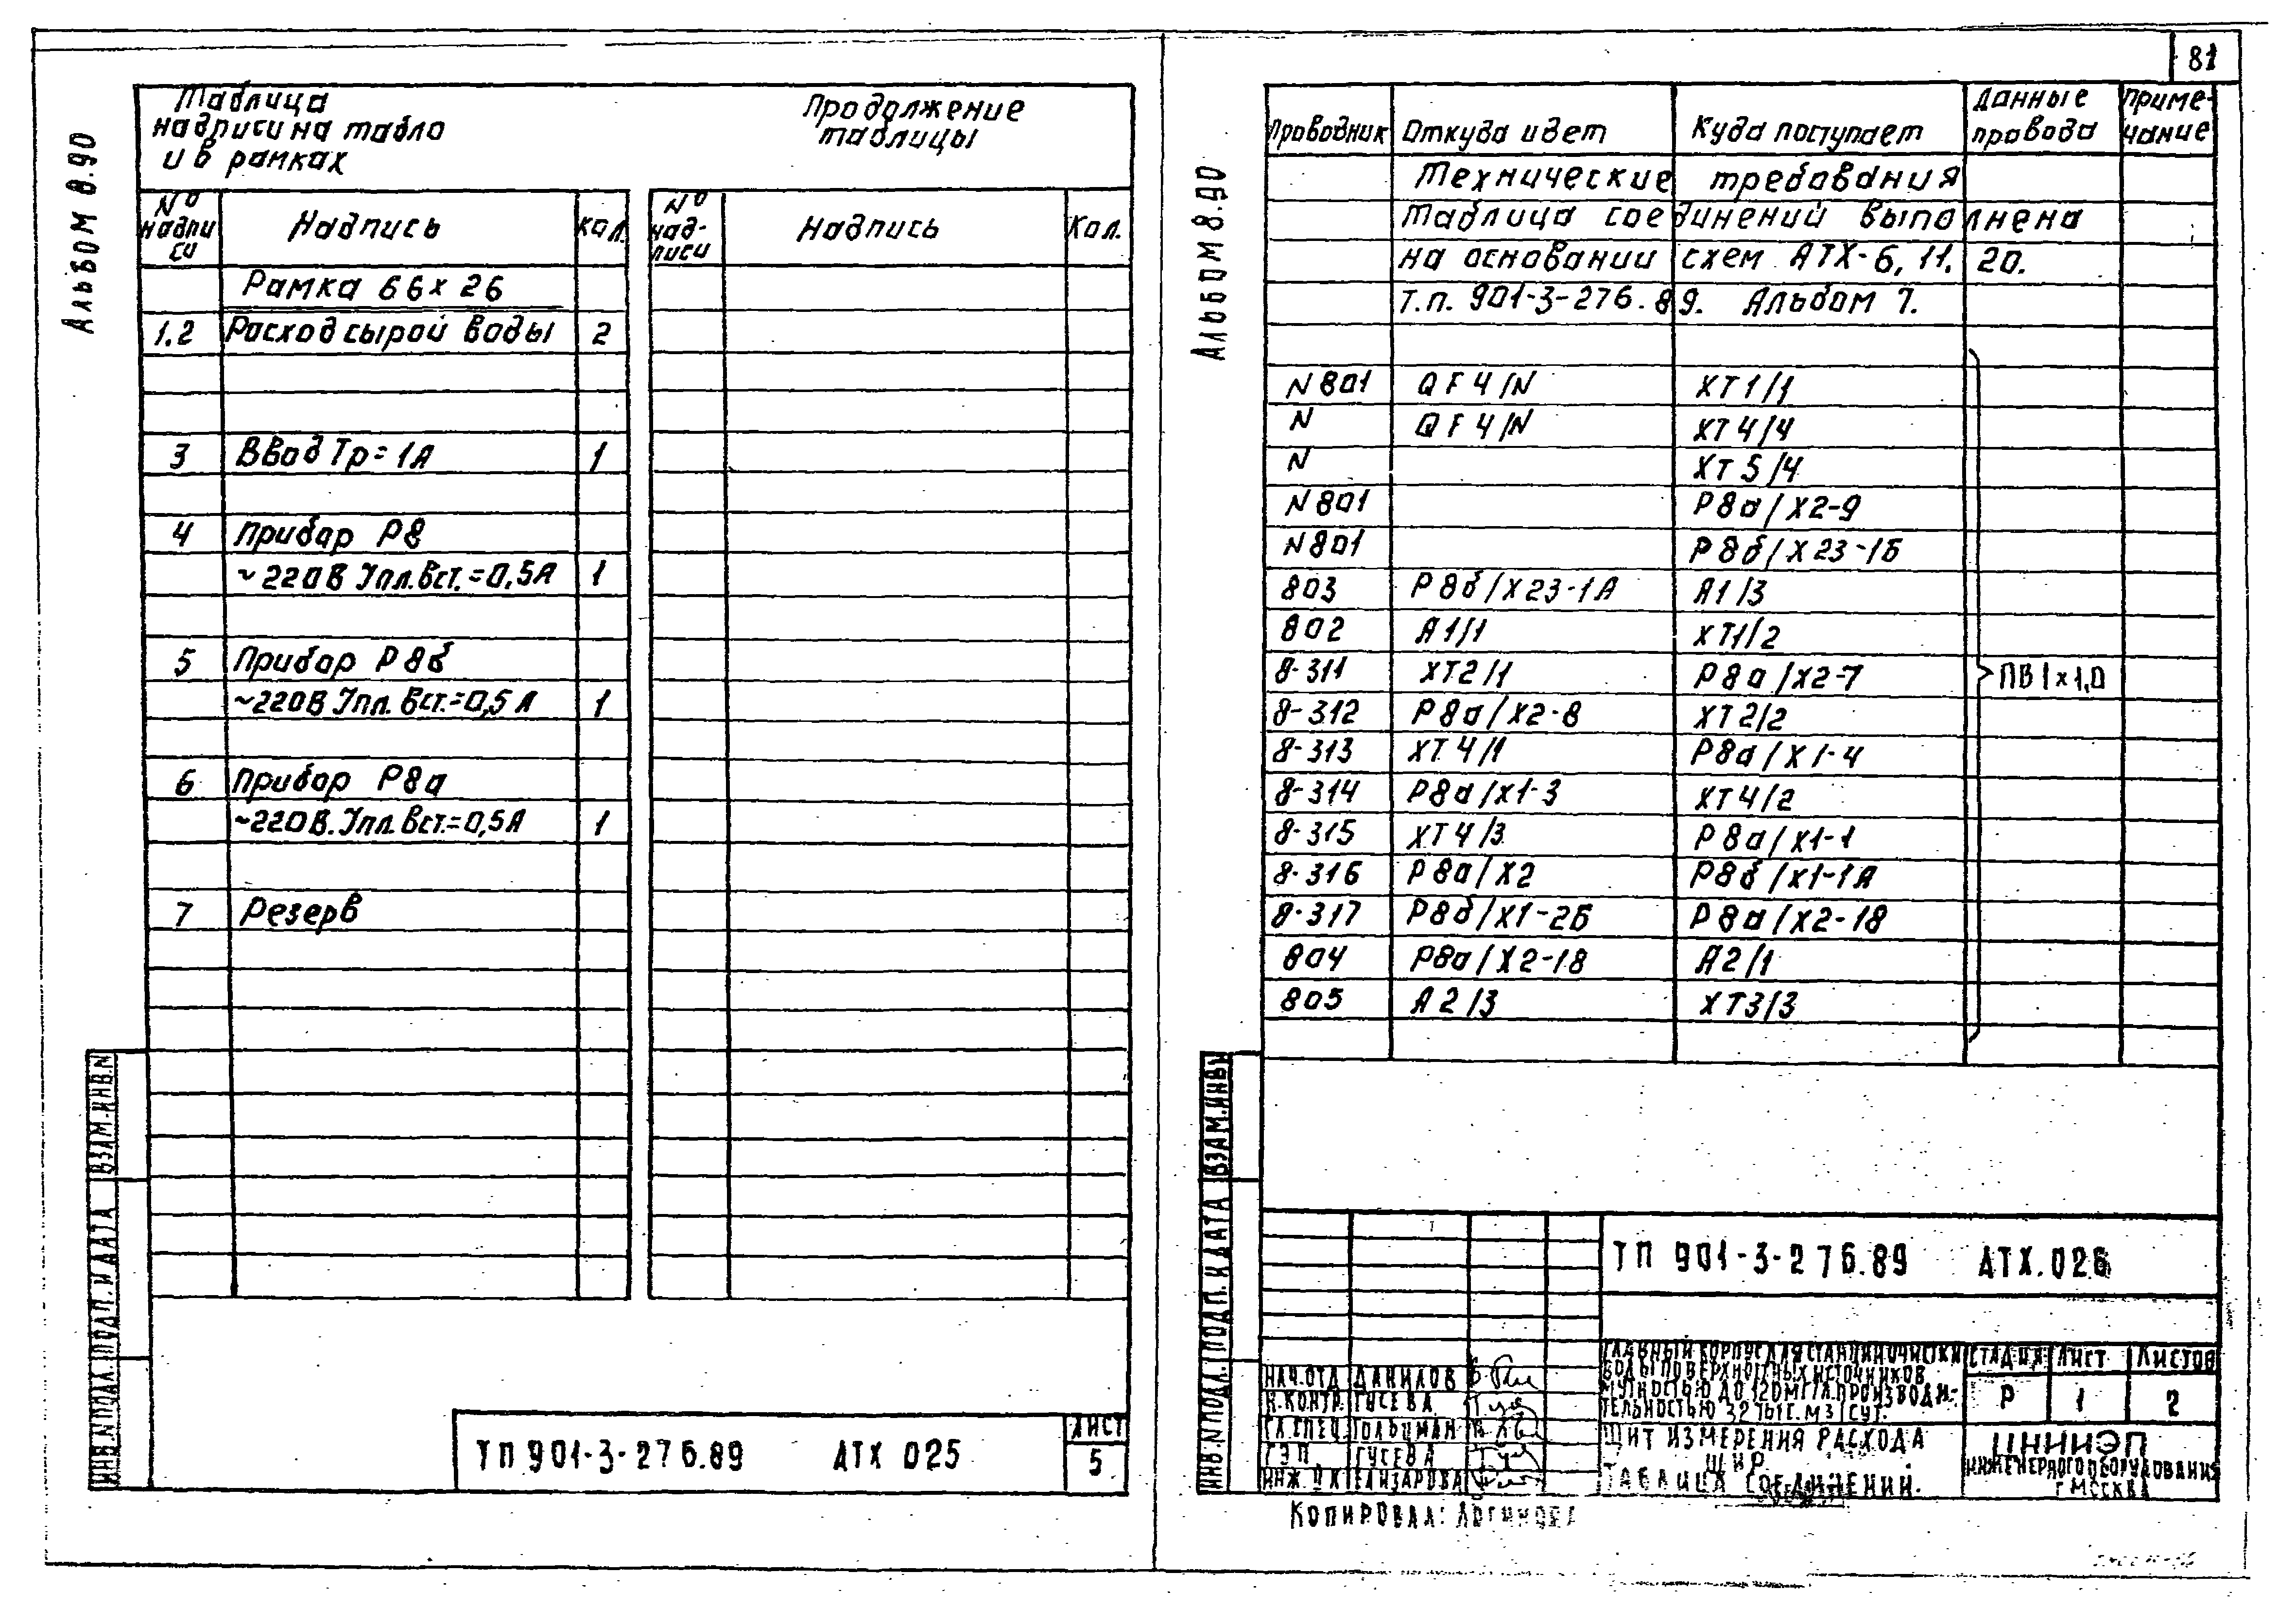 81
Альбом 8.90
Таблица
надписи на табло
и в рамках
Продолжение
таблицы
№ надписи Надпись Кол.
№ надписи Надпись Кол.
Рамка 66х26
1.2 Расход сырой воды 2
3 Ввод Тр=1А 1
4 Прибор Р8
~220В Jпл.вст.=0,5А 1
5 Прибор Р8б
~220В Jпл. вст.=0,5А 1
6 Прибор Р8а
~220В. Jпл. вст.=0,5А 1
7 Резерв
ВЗАМ.ИНВ.N
ПОДП. И ДАТА
ИНВ.N ПОДЛ.
ТП 901-3-276.89 АТХ 025
ЛИСТ
5
Альбом 8.90
Проводник Откуда идет Куда поступает Данные провода Примечание
Технические требования
Таблица соединений выполнена
на основании схем АТХ-6, 11, 20.
Т.п. 901-3-276.89. Альбом 7.
N801 QF4/N XT1/1
N QF4/N XT4/4
N XT5/4
N801 Р8а/Х2-9
N801 Р8б/Х23-1Б
803 Р8б/Х23-1А А1/3
802 А1/1 ХТ1/2
8-311 ХТ2/1 Р8а/Х2-7 ПВ 1х1,0
8-312 Р8а/Х2-8 ХТ2/2
8-313 ХТ4/1 Р8а/Х1-4
8-314 Р8а/Х1-3 ХТ4/2
8-315 ХТ4/3 Р8а/Х1-1
8-316 Р8а/Х2 Р8б/Х1-1А
8-317 Р8б/Х1-2Б Р8а/Х2-18
804 Р8а/Х2-18 А2/1
805 А2/3 ХТ3/3
ВЗАМ.ИНВ.N
ПОДП. И ДАТА
ИНВ.N ПОДЛ.
ТП 901-3-276.89 АТХ.026
НАЧ.ОТД ДАНИЛОВ
Н.КОНТР. ГУСЕВА
ГЛ.СПЕЦ ГОЛЬЦМАН
ГЭП ГУСЕВА
ИНЖ. II К ЕЛИЗАРОВА
ГЛАВНЫЙ КОРПУС ДЛЯ СТАНЦИИ ОЧИСТКИ
ВОДЫ ПОВЕРХНОСТНЫХ ИСТОЧНИКОВ
МУТНОСТЬЮ ДО 120МГ/Л ПРОИЗВОДИ-
ТЕЛЬНОСТЬЮ 32 ТЫС. М3/СУТ.
СТАДИЯ ЛИСТ ЛИСТОВ
Р 1 2
ЩИТ ИЗМЕРЕНИЯ РАСХОДА
ЩИР
ТАБЛИЦА СОЕДИНЕНИЙ.
ЦНИИЭП
ИНЖЕНЕРНОГО ОБОРУДОВАНИЯ
Г. МОСКВА
КОПИРОВАЛ: ЛОГИНОВА